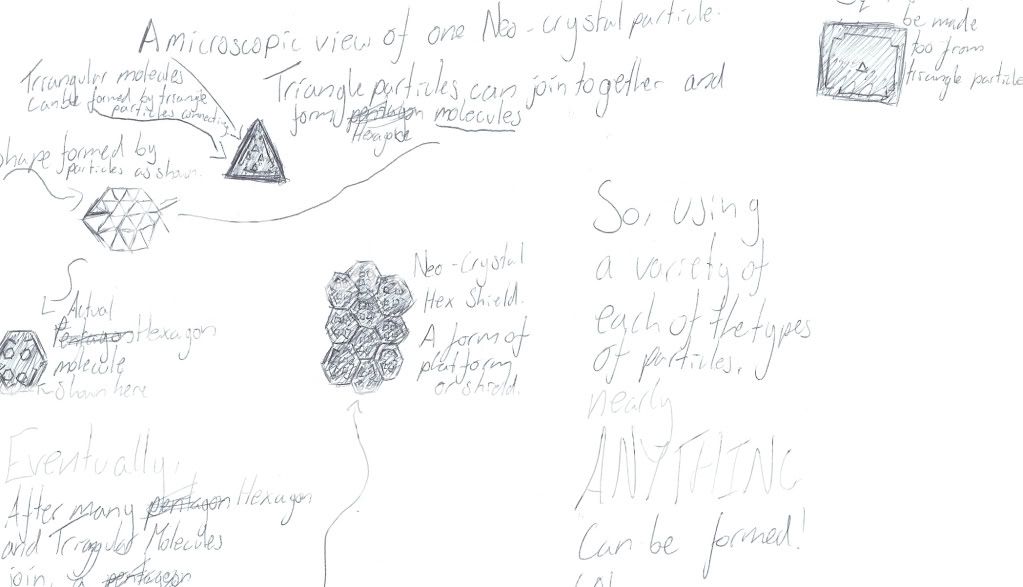 A microscopic view of one Neo-crystal particle.
Triangular molecules
can be formed by triangle
particles connecting
Triangle particles can join together and
form pentagon molecules
Hexagon
shape formed by
particles as shown.
be made
too from
triangle particle
Actual
Pentagon Hexagon
molecule
shown here
Neo-Crystal
Hex Shield.
A form of
platform
or shield.
So, using
a variety of
each of the types
of particles,
nearly
ANYTHING
Can be formed!
Eventually,
After many pentagon Hexagon
and Triangular Molecules
join, a pentagon